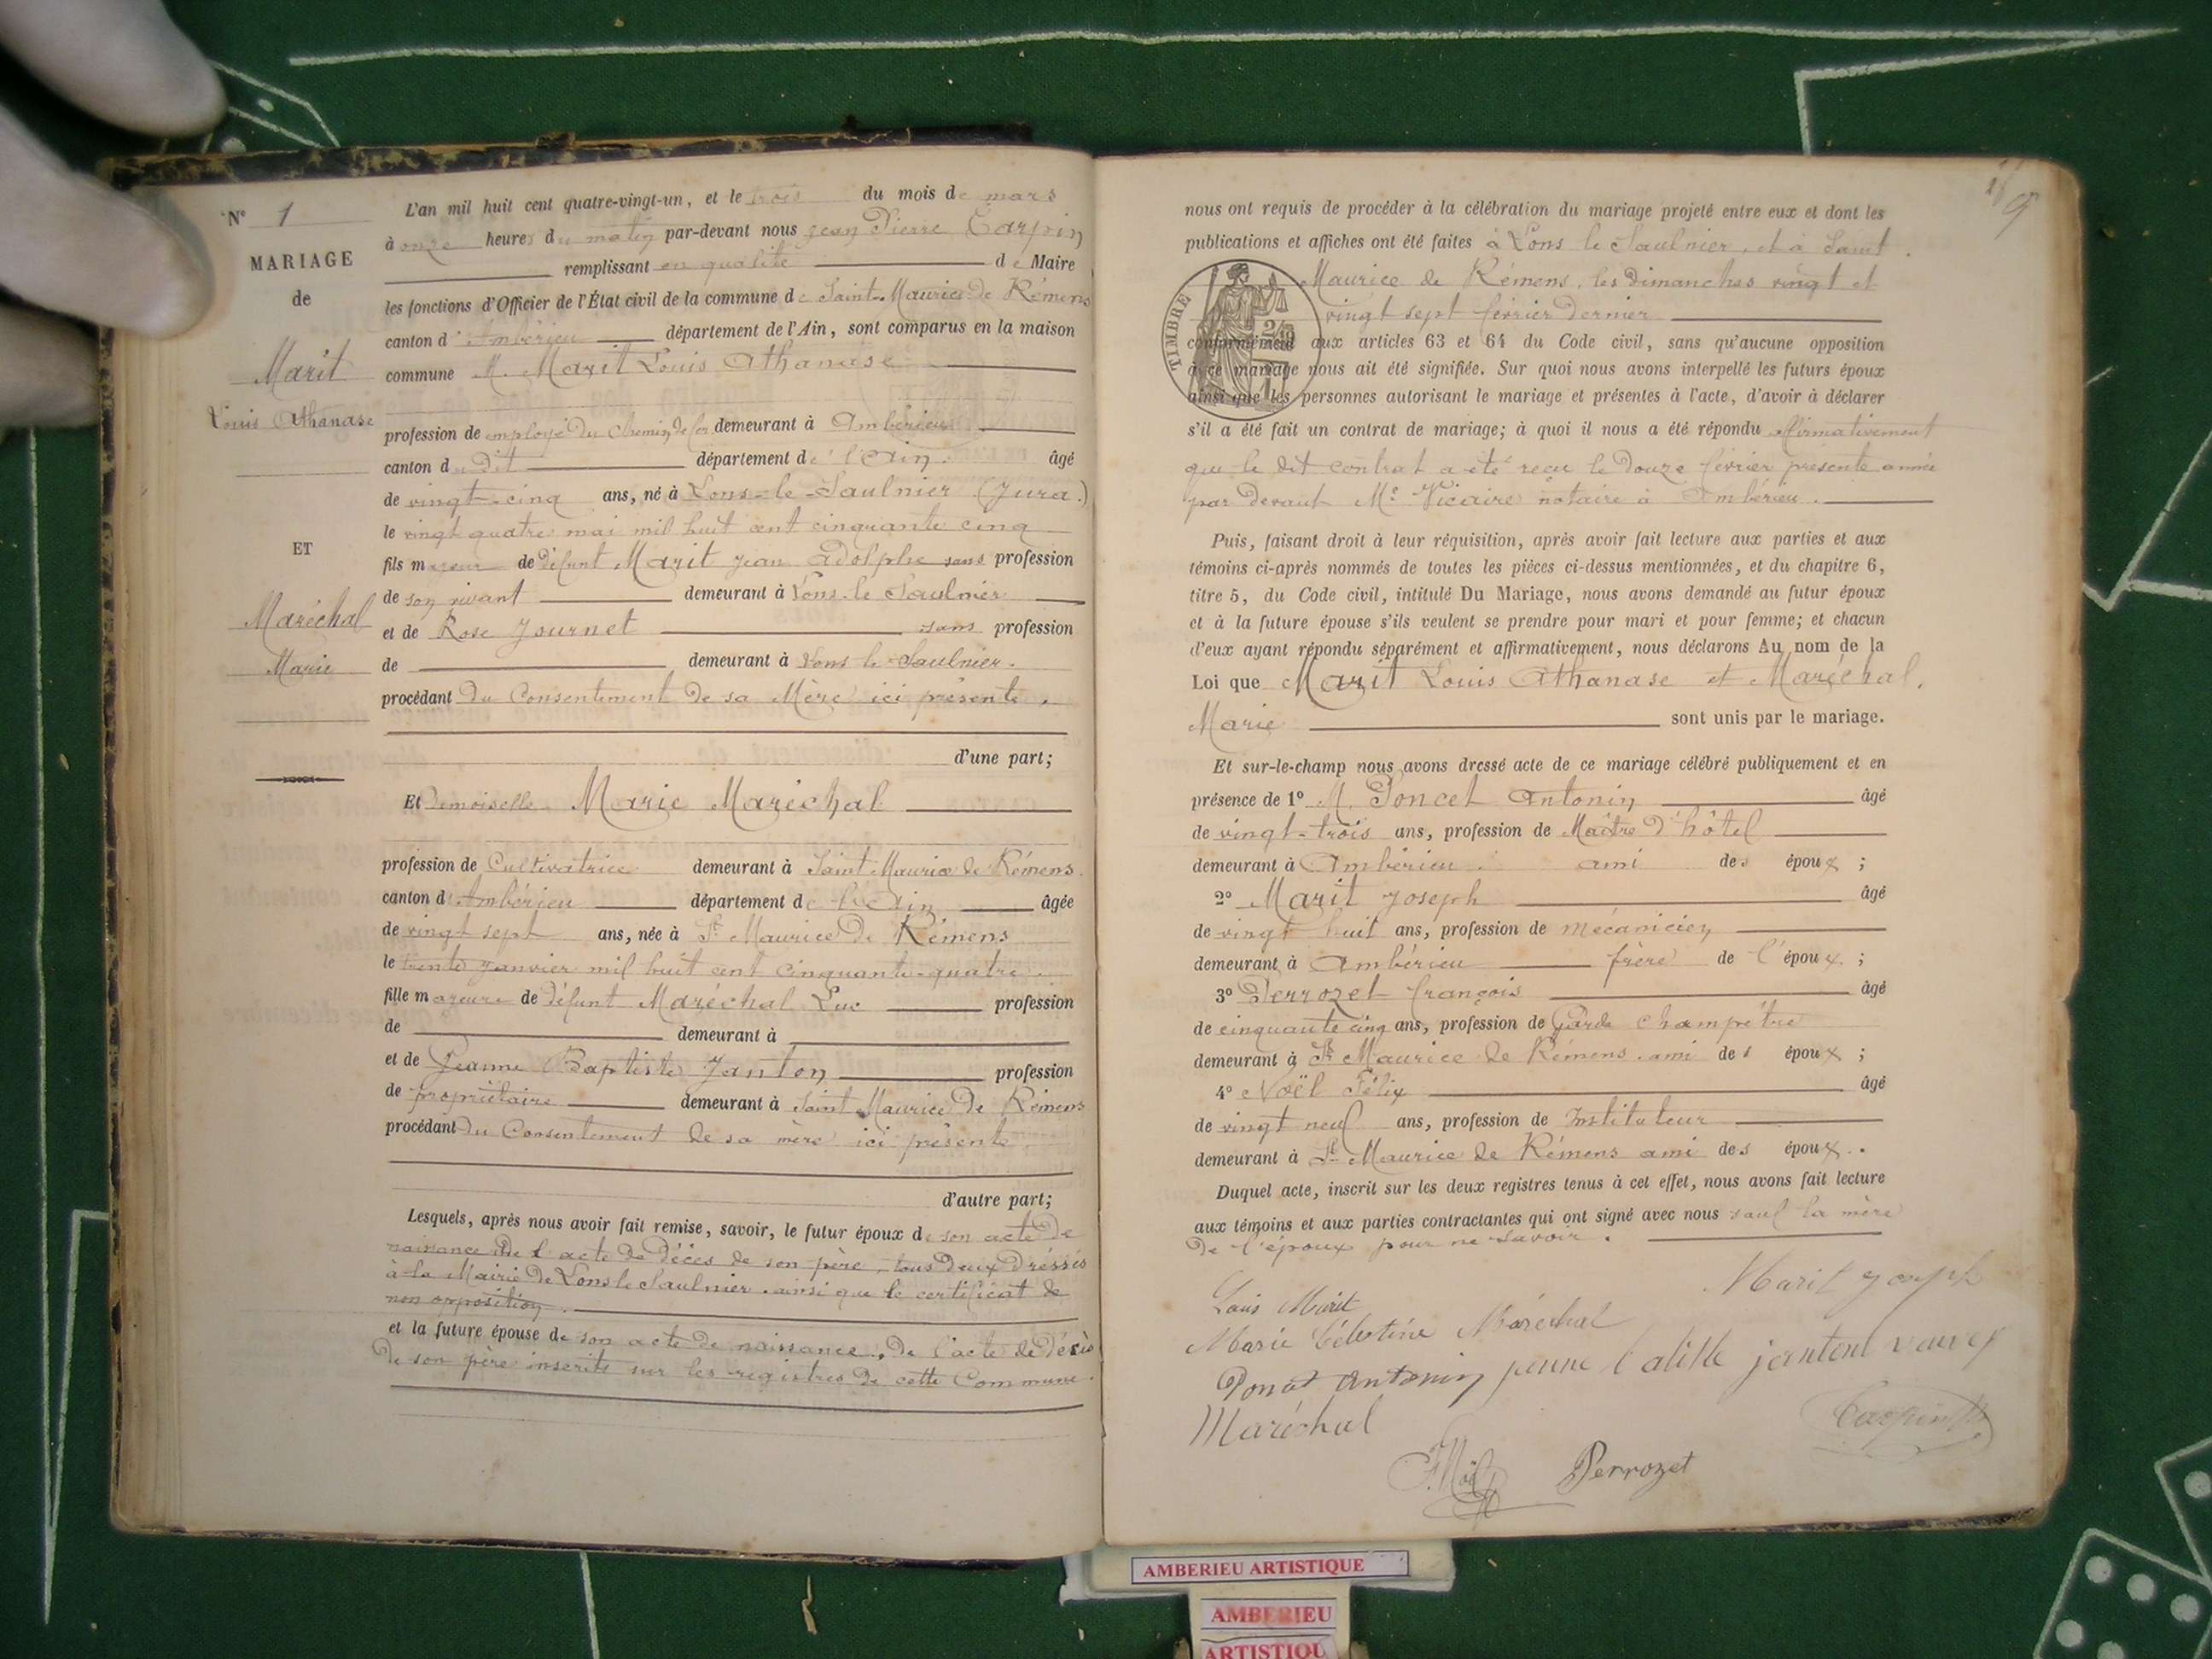 N° 1
MARIAGE
de
Marit
Louis Athanase
ET
Maréchal
Marie
L'an mil huit cent quatre-vingt-un, et le trois du mois de mars
à onze heures du matin par-devant nous Jean Pierre Carpin
remplissant en qualité de Maire
les fonctions d'Officier de l'État civil de la commune de Saint-Maurice de Rémens
canton d'Ambérieu département de l'Ain, sont comparus en la maison
commune M. Marit Louis Athanase
profession de employé du Chemin de fer demeurant à Ambérieu
canton du dit département de l'Ain. âgé
de vingt-cinq ans, né à Lons-le-Saulnier (Jura.)
le vingt quatre mai mil huit cent cinquante cinq
fils majeur de défunt Marit Jean Adolphe sans profession
de son vivant demeurant à Lons-le Saulnier
et de Rose Journet sans profession
de demeurant à Lons le Saulnier.
procédant du Consentement de sa Mère ici présente.
d'une part;
Et Demoiselle Marie Maréchal
profession de Cultivatrice demeurant à Saint Maurice de Rémens.
canton d'Ambérieu département de l'Ain âgée
de vingt sept ans, née à St Maurice de Rémens
le trente Janvier mil huit cent cinquante-quatre.
fille majeure de défunt Maréchal Luc profession
de demeurant à
et de Jeanne Baptiste Janton profession
de propriétaire demeurant à Saint Maurice de Rémens
procédant du Consentement de sa mère ici présente
d'autre part;
Lesquels, après nous avoir fait remise, savoir, le futur époux de son acte de
naissance de l'acte de décès de son père, tous deux dressés
à la Mairie de Lons le Saulnier. ainsi que le certificat de
non opposition.
et la future épouse de son acte de naissance, de l'acte de décès
de son père inscrits sur les registres de cette Commune.
9
nous ont requis de procéder à la célébration du mariage projeté entre eux et dont les
publications et affiches ont été faites à Lons le Saulnier, et à Saint
Maurice de Rémens, les dimanches vingt et
vingt sept février dernier
TIMBRE
conformément aux articles 63 et 64 du Code civil, sans qu'aucune opposition
à ce mariage nous ait été signifiée. Sur quoi nous avons interpellé les futurs époux
ainsi que les personnes autorisant le mariage et présentes à l'acte, d'avoir à déclarer
s'il a été fait un contrat de mariage; à quoi il nous a été répondu affirmativement
que le dit contrat a été reçu le douze février présente année
par devant Me Vicaire notaire à Ambérieu.
Puis, faisant droit à leur réquisition, après avoir fait lecture aux parties et aux
témoins ci-après nommés de toutes les pièces ci-dessus mentionnées, et du chapitre 6,
titre 5, du Code civil, intitulé Du Mariage, nous avons demandé au futur époux
et à la future épouse s'ils veulent se prendre pour mari et pour femme; et chacun
d'eux ayant répondu séparément et affirmativement, nous déclarons Au nom de la
Loi que Marit Louis Athanase et Maréchal.
Marie sont unis par le mariage.
Et sur-le-champ nous avons dressé acte de ce mariage célébré publiquement et en
présence de 1° M. Poncet Antonin âgé
de vingt-trois ans, profession de Maître d'hôtel
demeurant à Ambérieu. ami des époux;
2° Marit Joseph âgé
de vingt huit ans, profession de mécanicien
demeurant à Ambérieu frère de l'époux.;
3° Perrozet françois âgé
de cinquante cinq ans, profession de Garde champêtre
demeurant à St Maurice de Rémens. ami des époux;
4° Noël Félix âgé
de vingt neuf ans, profession de Instituteur
demeurant à St Maurice de Rémens ami des époux.
Duquel acte, inscrit sur les deux registres tenus à cet effet, nous avons fait lecture
aux témoins et aux parties contractantes qui ont signé avec nous sauf la mère
de l'époux pour ne savoir.
Marit Joseph
Louis Marit
Marie Célestine Maréchal
Ponset Antonin jeune batitte jantont veuve
Maréchal
Carpin
F. Noël Perrozet
AMBERIEU ARTISTIQUE
AMBERIEU
ARTISTIQU